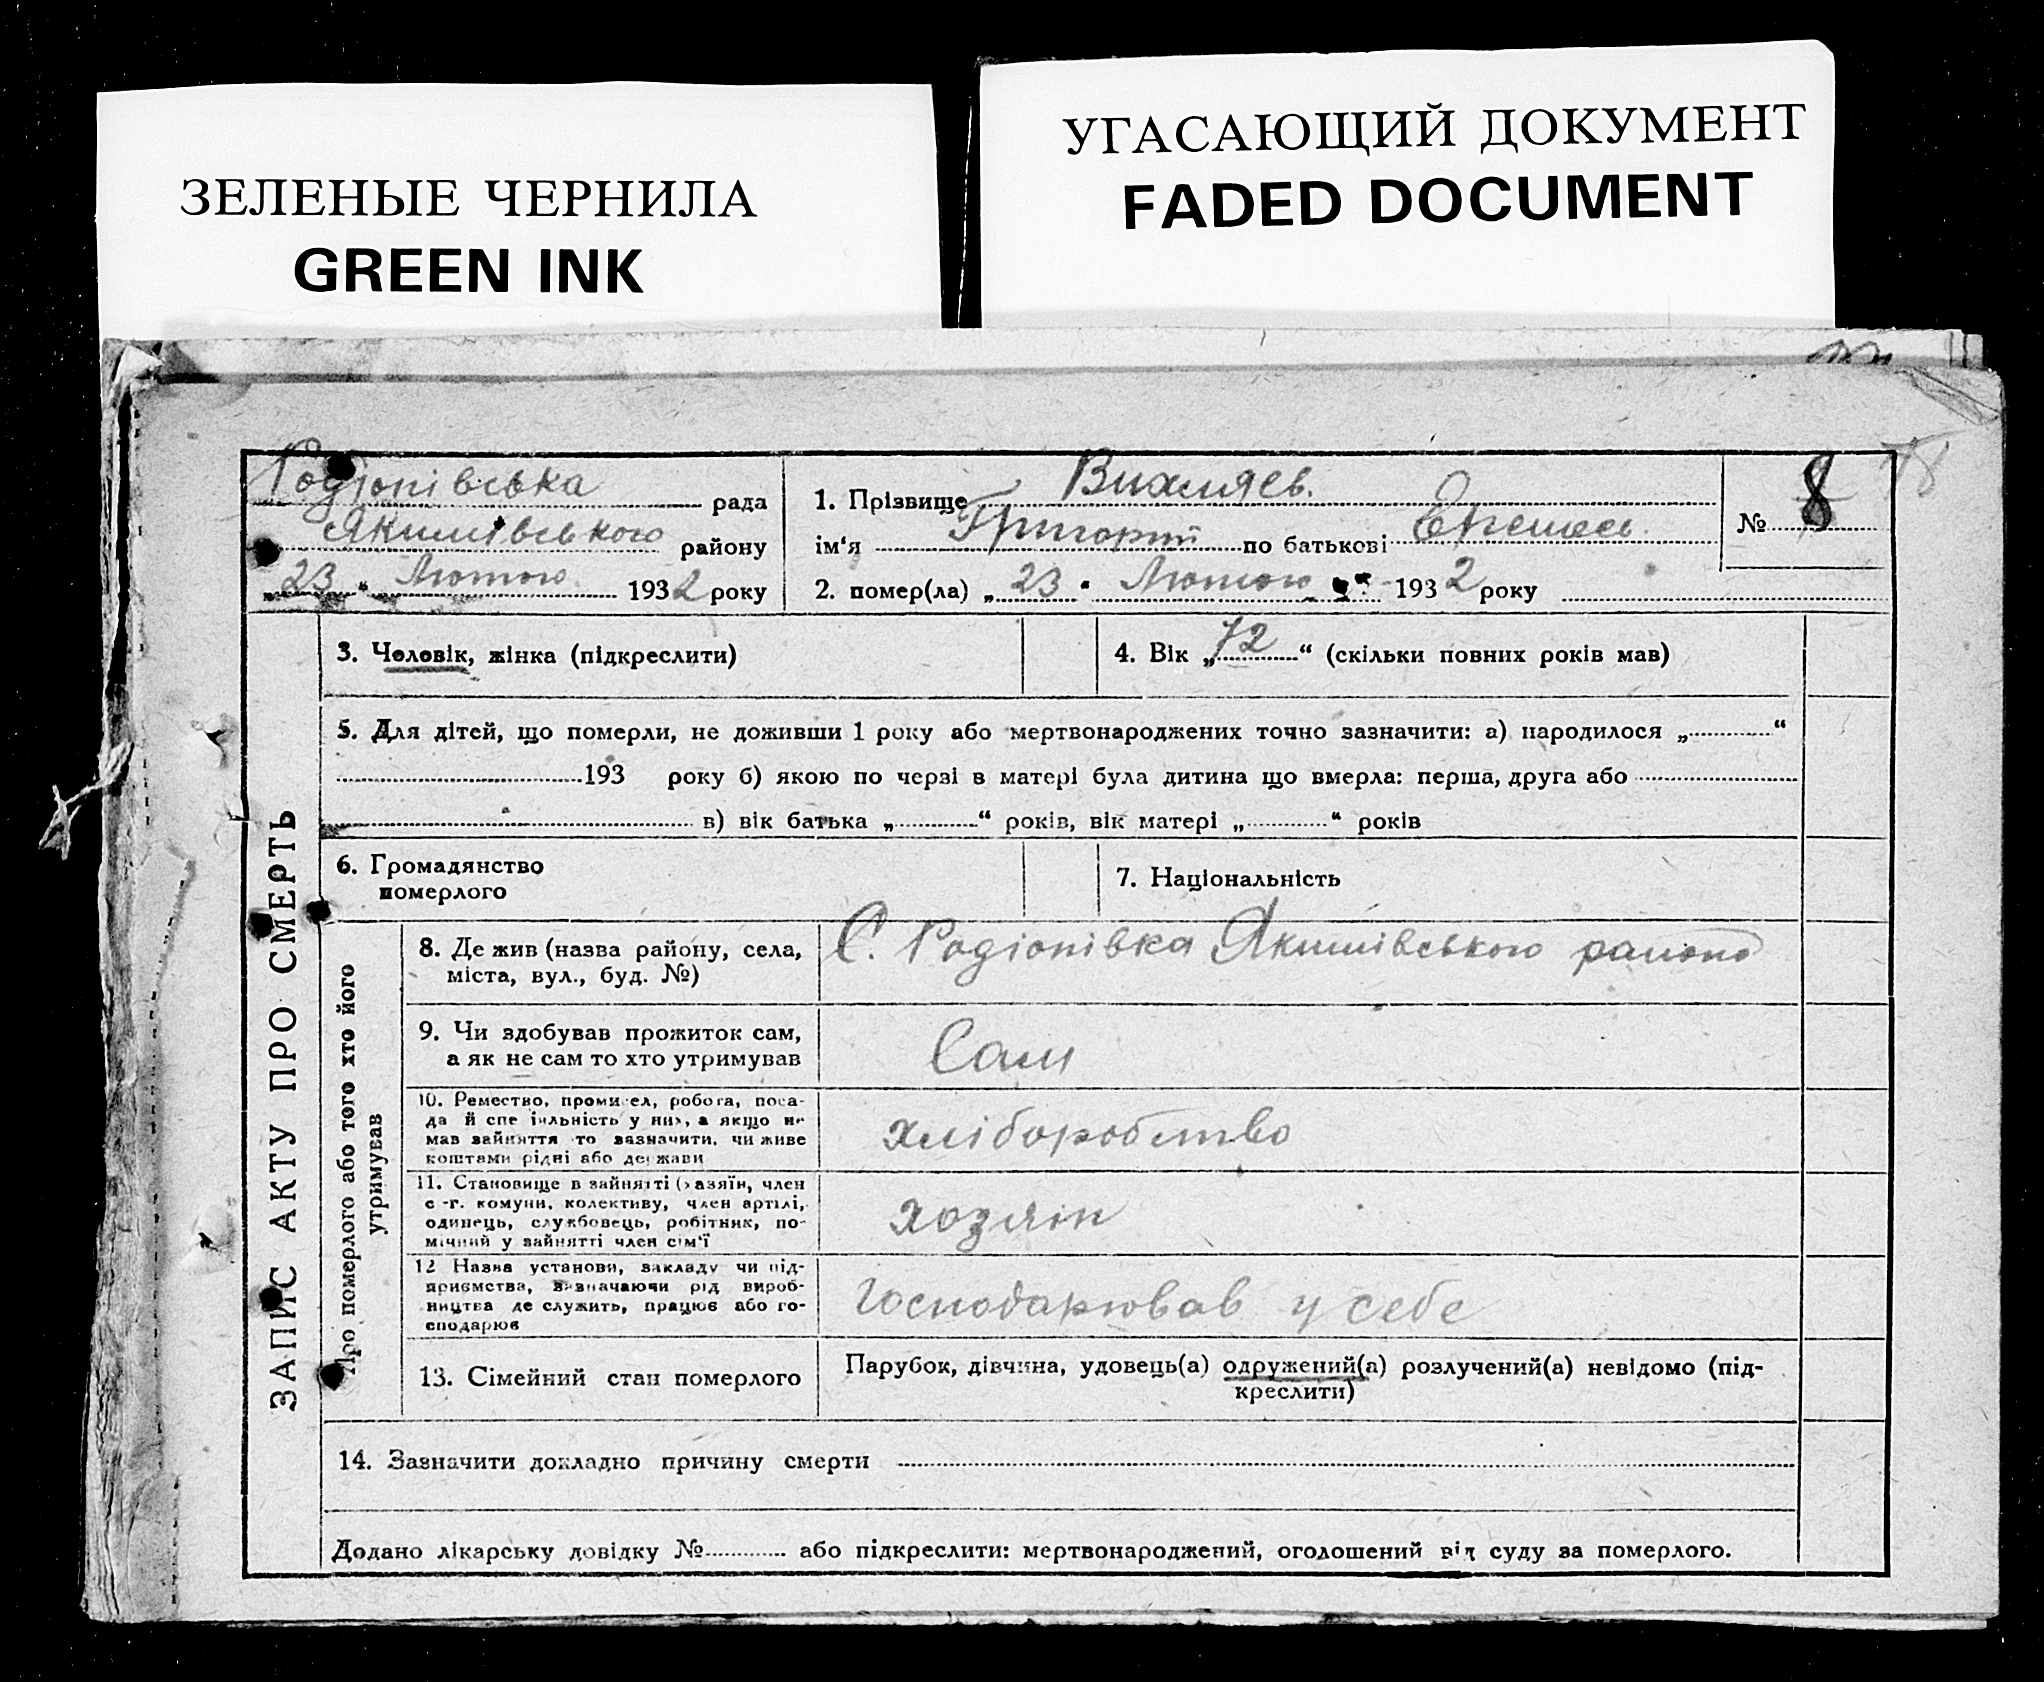 ЗЕЛЕНЫЕ ЧЕРНИЛА
GREEN INK
УГАСАЮЩИЙ ДОКУМЕНТ
FADED DOCUMENT
Родіонівська рада
Якимівського району
23 " Лютого 1932 року
1. Прізвище Вихляєв.
ім'я Григорій по батькові
2. помер(ла) „ 23 " Лютого 1932 року
№ 8
78
ЗАПИС АКТУ ПРО СМЕРТЬ
3. Чоловік, жінка (підкреслити)
4. Вік „ 72 “ (скільки повних років мав)
5. Для дітей, що померли, не доживши 1 року або мертвонароджених точно зазначити: а) народилося „ “
193 року б) якою по черзі в матері була дитина що вмерла: перша, друга або
в) вік батька „ “ років, вік матері „ “ років
6. Громадянство
померлого
7. Національність
Про померлого або того хто його
утримував
8. Де жив (назва району, села,
міста, вул., буд. №)
С. Родіонівка Якимівського району
9. Чи здобував прожиток сам,
а як не сам то хто утримував
Сам
10. Ремество, промисел, робота, поса-
да й спеціяльність у них, а якщо не
мав зайняття то зазначити, чи живе
коштами рідні або держави
хліборобство
11. Становище в зайнятті (хазяїн, член
с.-г. комуни, колективу, член артілі,
одинець, службовець, робітник, по-
мічний у зайнятті член сім'ї
хозяін
12 Назва установи, закладу чи під-
приємства, визначаючи рід вироб-
ництва де служить, працює або го-
сподарює
Господарював у себе
13. Сімейний стан померлого
Парубок, дівчина, удовець(а) одружений(а) розлучений(а) невідомо (під-
креслити)
14. Зазначити докладно причину смерти
Додано лікарську довідку № або підкреслити: мертвонароджений, оголошений від суду за померлого.